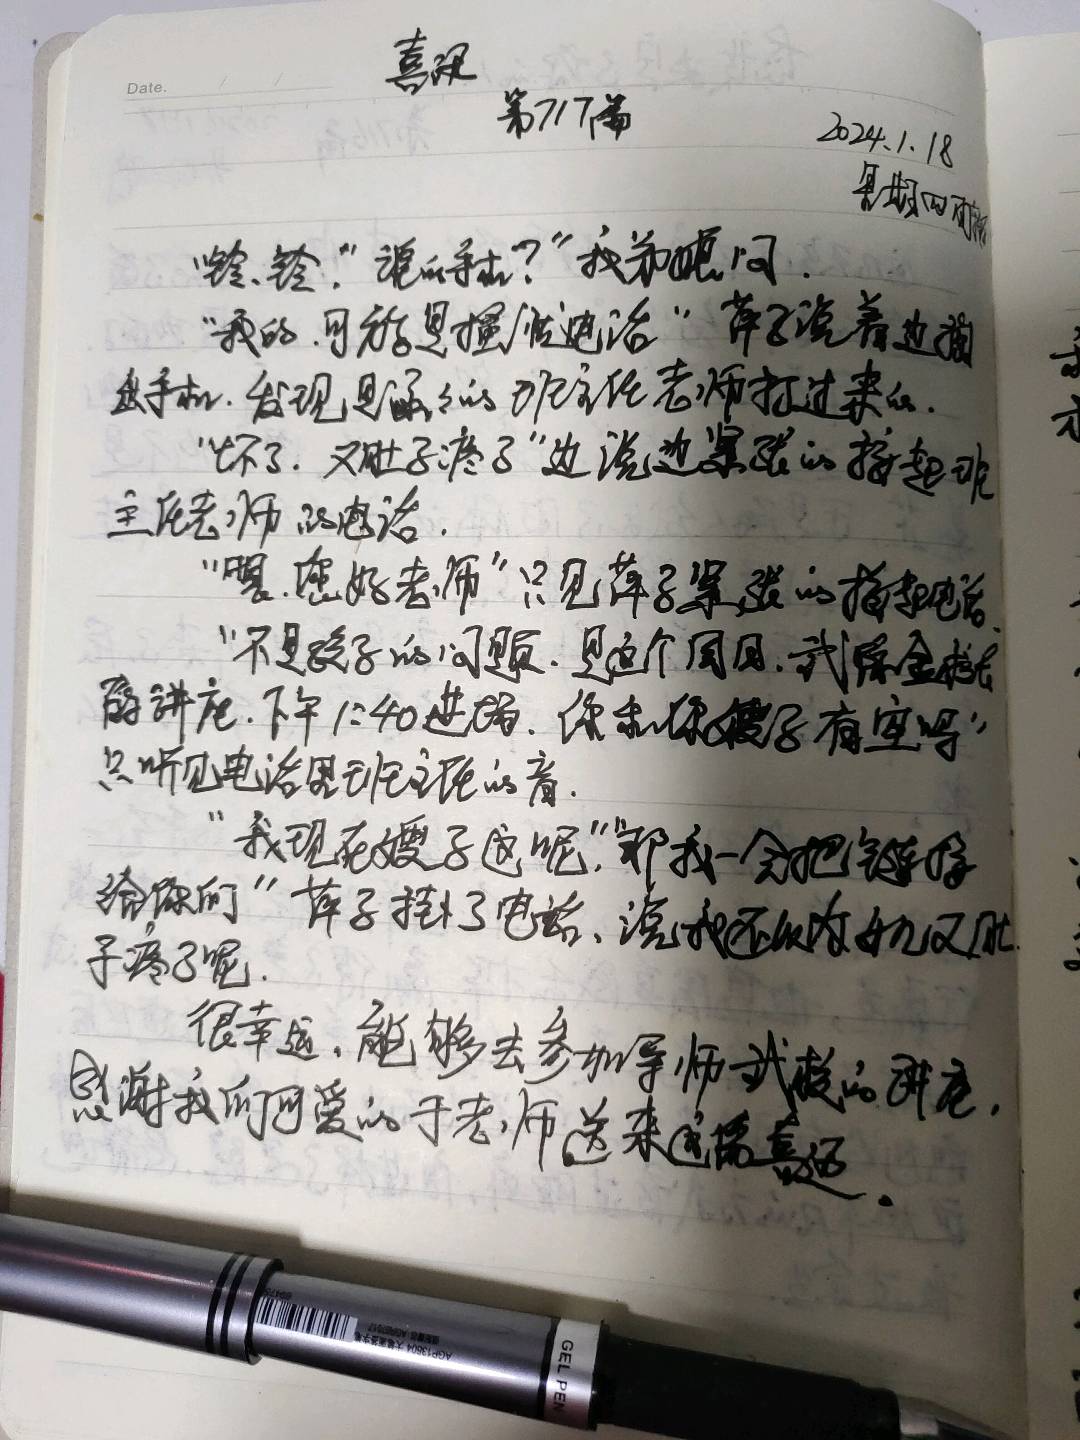 Date.
喜讯
第717篇
2024.1.18
星期四
"铃、铃." 谁的手机?"我和 问.
"我的.可能是骚扰电话" 萍子说着边掏
出手机.发现是涵涵的班主任老师打过来的.
"坏了.又肚子疼了"边说边紧张的接起班
主任老师的电话.
"喂.您好老师"只见萍子紧张的接起电话.
"不是孩子的问题.是这个周日.武 金
讲座.下午1:40进场.你和你嫂子有空吗"
只听见电话里班主任的音.
"我现在嫂子这呢.""那我一会把链接
给你们" 萍子挂了电话、说我还以为 又肚
子疼了呢.
很幸运、能够去参加导师武 的讲座,
感谢我们可爱的于老师送来这 喜讯.
AGP13604
GEL PEN